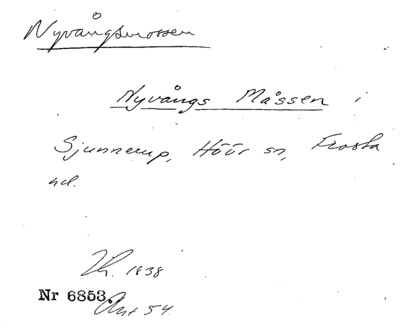 Nyvångsmossen
Nyvångs Måssen i
Sjunnerup, Höör sn, Frosta
hd.
1838
Nr 6853.
54.